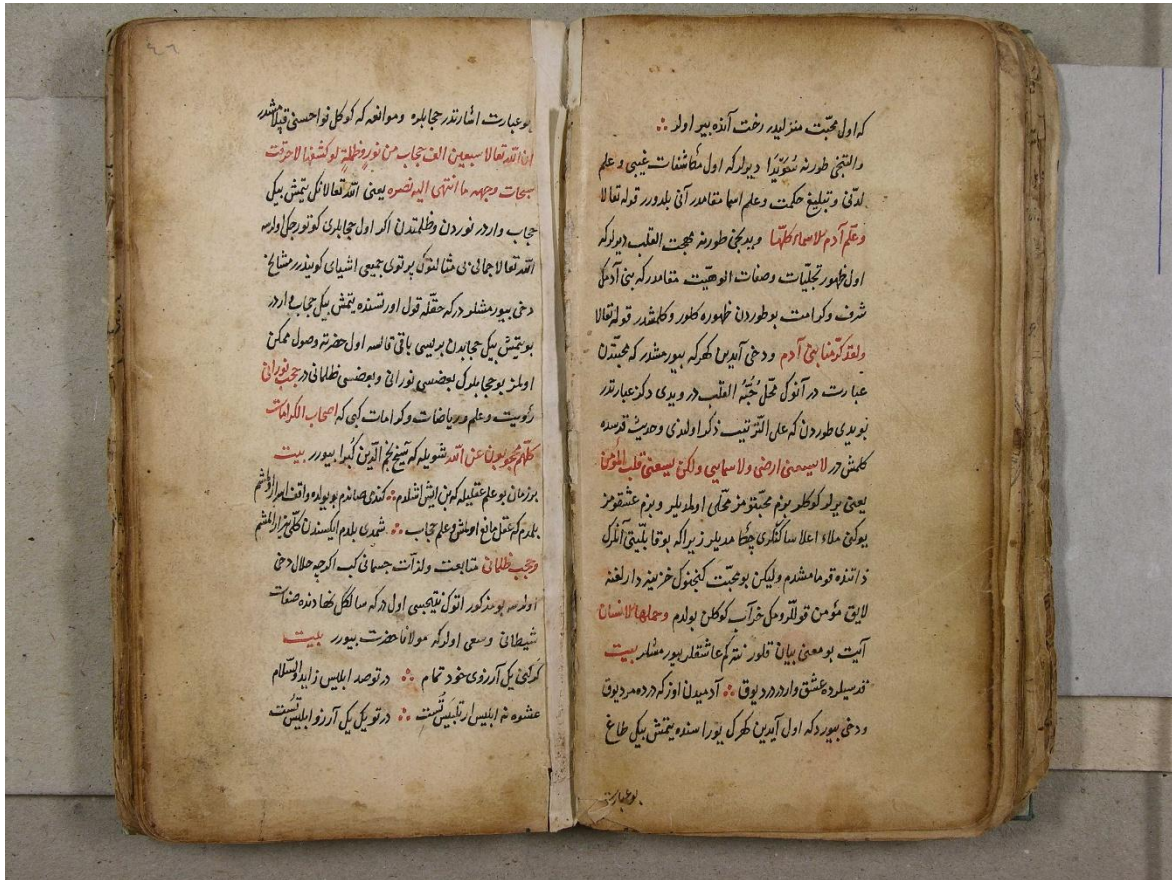 که اول محبّت منزلیدر رخت آنده بیر اولد
والتنجی طورنه سُوَیْدَا دیرلرکه اول مکاشفات غیبی و علم
لدنّی و تبلیغ حکمت و علم اسما مقامدر آنی بلدورر قوله تعالا
وعلّم آدم الاسماء کلّها ویدیجی طورنه مهجت القلب دیرلرکه
اول ظهور تجلیّات وصفات الوهیّت مقامدرکه بنی آدمک
شرف وکرامت بوطوردن ظهوره کلور وکلمشدر قوله تعالا
ولقد کرّمنا بنی آدم ودخی آیدین کهرکه بیورمشدر که محبّتدن
عبارت در آنوک محلی حُبَّهُ القلب در ویدی دکزعبارتدر
بویدی طوردن که علی التّرتیب ذکر اولندی وحدیث قدسده
کلمش در لا یسعنی ارضی ولا سمایی ولکن یسعنی قلب المؤمن
یعنی یرلر کوکلر بزم محبّتومز محلّی اولمدیلر وبزم عشقومز
یوکنی ملاء اعلا ساکنلری چکا مدیلر زیراکه بوقابلیّتی آنلرک
ذاتنده قومامشدم ولیکن بومحبّت کنجنوک خزینه دارلغنه
لایق مؤمن قوللرومک خراب کوکلن بولدم وحملها الانسان
آیت بومعنی بیان قلور نته کم عاشقلر بیورمشلر بیت
قدسیلرده عشق واردر درد یوق آدمیدن اوزکه درده مرد یوق
ودخی بیوردکه اول آیدین کهرک یوراسنده یتمش بیک طاغ
بوعبارت
٤٦
بوعبارت اشارتدر حجابلره وموانعه که کوکل نواحسنی قپلامشدر
ان الله تعالا سبعین الف حجاب من نور وظلمة لوکشفها لاحرقت
سبحات وجهه ما انتهی الیه بصره یعنی الله تعالانک یتمش بیک
حجاب واردر نوردن وظلمتدن اکر اول حجابلری کوتورجک اولرسه
الله تعالا جمالی بی مثالنوک پرتوی جمیی اشیای کویندرر مشایخ
دخی بیورمشلر درکه حقله قول اورتسنده یتمش بیک حجاب واردر
بویتمش بیک حجابدن بریسی باقی قالسه اول حضرته وصول ممکن
اولمز بوحجابلرک بعضسی نورانی وبعضسی ظلمانی در حجب نورانی
رؤیت وعلم وریاضات وکرامات کبی که اصحاب الکرامات
کلّهم محجوبون عن الله شویله که شیخ نجم الدّین کبرا بیورر بیت
برزمان بوعلم عقلیله که بن ایش اشلدم کندی صاندم بویولده واقف اسرار اولمشم
بلدم که عقل مانع اولمش وعلم حجاب شمدی بلدم ایکسندن کلّی بیزار المشم
وحجب ظلمانی متابعت ولذّات جسمانی کب اکرچه حلال دخی
اولرسه بومذکور اتوک نتیجسی اول درکه سالکک نهادنده صفات
شیطانی وسعی اولرکه مولانا حضرت بیورر بیت
کرکنی یک آرزوی خود تمام در توصد ابلیس زاید والسّلام
عشوه نه ابلیس ار تلبیس تست در تو یک یک آرزو ابلیس تست